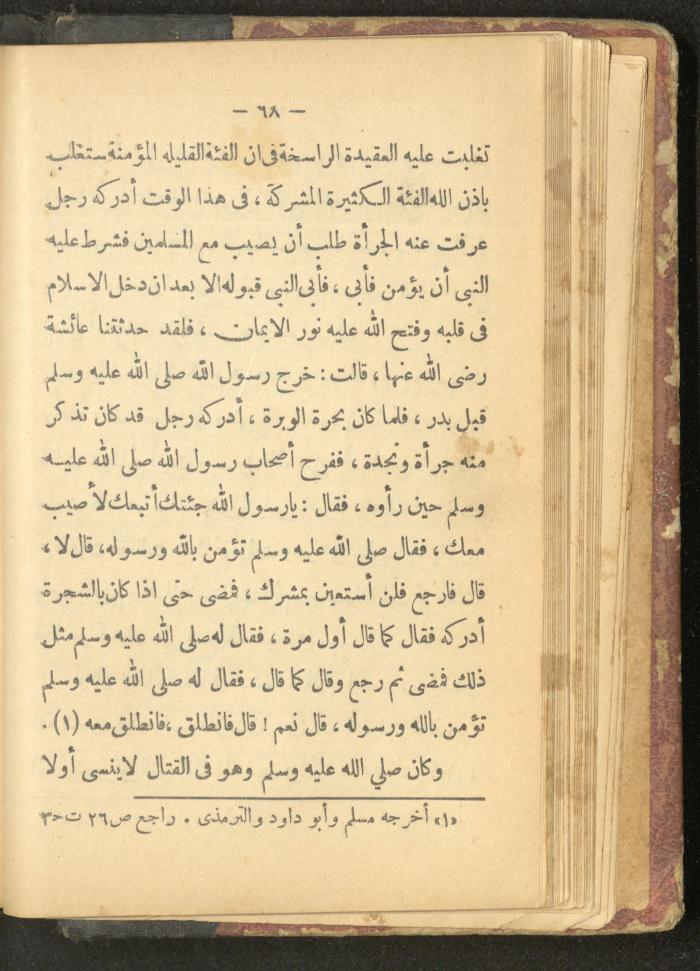 — ٦٨ —
تغلبت عليه العقيدة الراسخة فى ان الفئة القليله المؤمنة ستغلب
باذن الله الفئة الكثيرة المشركة ، فى هذا الوقت أدركه رجل
عرفت عنه الجرأة طلب أن يصيب مع المسلمين فشرط عليه
النبى أن يؤمن فأبى ، فأبى النبى قبوله الا بعد ان دخل الاسلام
فى قلبه وفتح الله عليه نور الايمان ، فلقد حدثتنا عائشة
رضى الله عنها ، قالت : خرج رسول الله صلى الله عليه وسلم
قبل بدر ، فلما كان بحرة الوبرة ، أدركه رجل قد كان تذكر
منه جرأة ونجدة ، ففرح أصحاب رسول الله صلى الله عليه
وسلم حين رأوه ، فقال : يارسول الله جئتك أتبعك لأصيب
معك ، فقال صلى الله عليه وسلم تؤمن بالله ورسوله ، قال لا ،
قال فارجع فلن أستعين بمشرك ، فمضى حتى اذا كان بالشجرة
أدركه فقال كما قال أول مرة ، فقال له صلى الله عليه وسلم مثل
ذلك فمضى ثم رجع وقال كما قال ، فقال له صلى الله عليه وسلم
تؤمن بالله ورسوله ، قال نعم ! قال فانطلق ، فانطلق معه (١) .
وكان صلي الله عليه وسلم وهو فى القتال لاينسى أولا
«١» أخرجه مسلم وأبو داود والترمذى . راجع ص ٢٦ ت ح٣